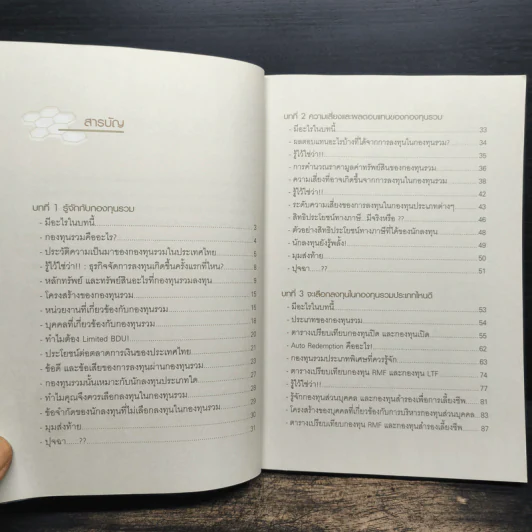 สารบัญ
บทที่ 1 รู้จักกับกองทุนรวม
- มีอะไรในบทนี้ 3
- กองทุนรวมคืออะไร? 4
- ประวัติความเป็นมาของกองทุนรวมในประเทศไทย 5
- รู้ไว้ใช่ว่า!! : ธุรกิจจัดการลงทุนเกิดขึ้นครั้งแรกที่ไหน? 8
- หลักทรัพย์ และทรัพย์สินอะไรที่กองทุนรวมลงทุน 9
- โครงสร้างของกองทุนรวม 15
- หน่วยงานที่เกี่ยวข้องกับกองทุนรวม
- บุคคลที่เกี่ยวข้องกับกองทุนรวม
- ทำไมต้อง Limited BDU!
- ประโยชน์ต่อตลาดการเงินของประเทศไทย
- ข้อดี และข้อเสียของการลงทุนผ่านกองทุนรวม
- กองทุนรวมนั้นเหมาะกับนักลงทุนประเภทใด
- ทำไมคุณจึงควรเลือกลงทุนในกองทุนรวม
- ข้อจำกัดของนักลงทุนที่ไม่เลือกลงทุนในกองทุนรวม
- มุมส่งท้าย
- ปุจฉา.....?? 31
บทที่ 2 ความเสี่ยงและผลตอบแทนของกองทุนรวม
- มีอะไรในบทนี้ 33
- ผลตอบแทนอะไรบ้างที่ได้จากการลงทุนในกองทุนรวม? 34
- รู้ไว้ใช่ว่า!! 35
- การคำนวณราคามูลค่าทรัพย์สินของกองทุนรวม 36
- ความเสี่ยงที่อาจเกิดขึ้นจากการลงทุนในกองทุนรวม 38
- รู้ไว้ใช่ว่า!! 42
- ระดับความเสี่ยงของการลงทุนในกองทุนประเภทต่างๆ 42
- สิทธิประโยชน์ทางภาษี...มีจริงหรือ ??
- ตัวอย่างสิทธิประโยชน์ทางภาษีที่ได้ของนักลงทุน
- นักลงทุนยังรู้พลั้ง!
- มุมส่งท้าย 50
- ปุจฉา.....?? 51
บทที่ 3 จะเลือกลงทุนในกองทุนรวมประเภทไหนดี
- มีอะไรในบทนี้ 53
- ประเภทของกองทุนรวม 54
- ตารางเปรียบเทียบกองทุนปิด และกองทุนเปิด 55
- Auto Redemption คืออะไร! 62
- กองทุนรวมประเภทพิเศษที่ควรรู้จัก 64
- ตารางเปรียบเทียบกองทุน RMF และกองทุน LTF 74
- รู้ไว้ใช่ว่า!! 77
- รู้จักกองทุนส่วนบุคคล และกองทุนสำรองเพื่อการเลี้ยงชีพ 81
- โครงสร้างของบุคคลที่เกี่ยวข้องกับการบริหารกองทุนส่วนบุคคล 83
- ตารางเปรียบเทียบกองทุน RMF และกองทุนสำรองเลี้ยงชีพ 87